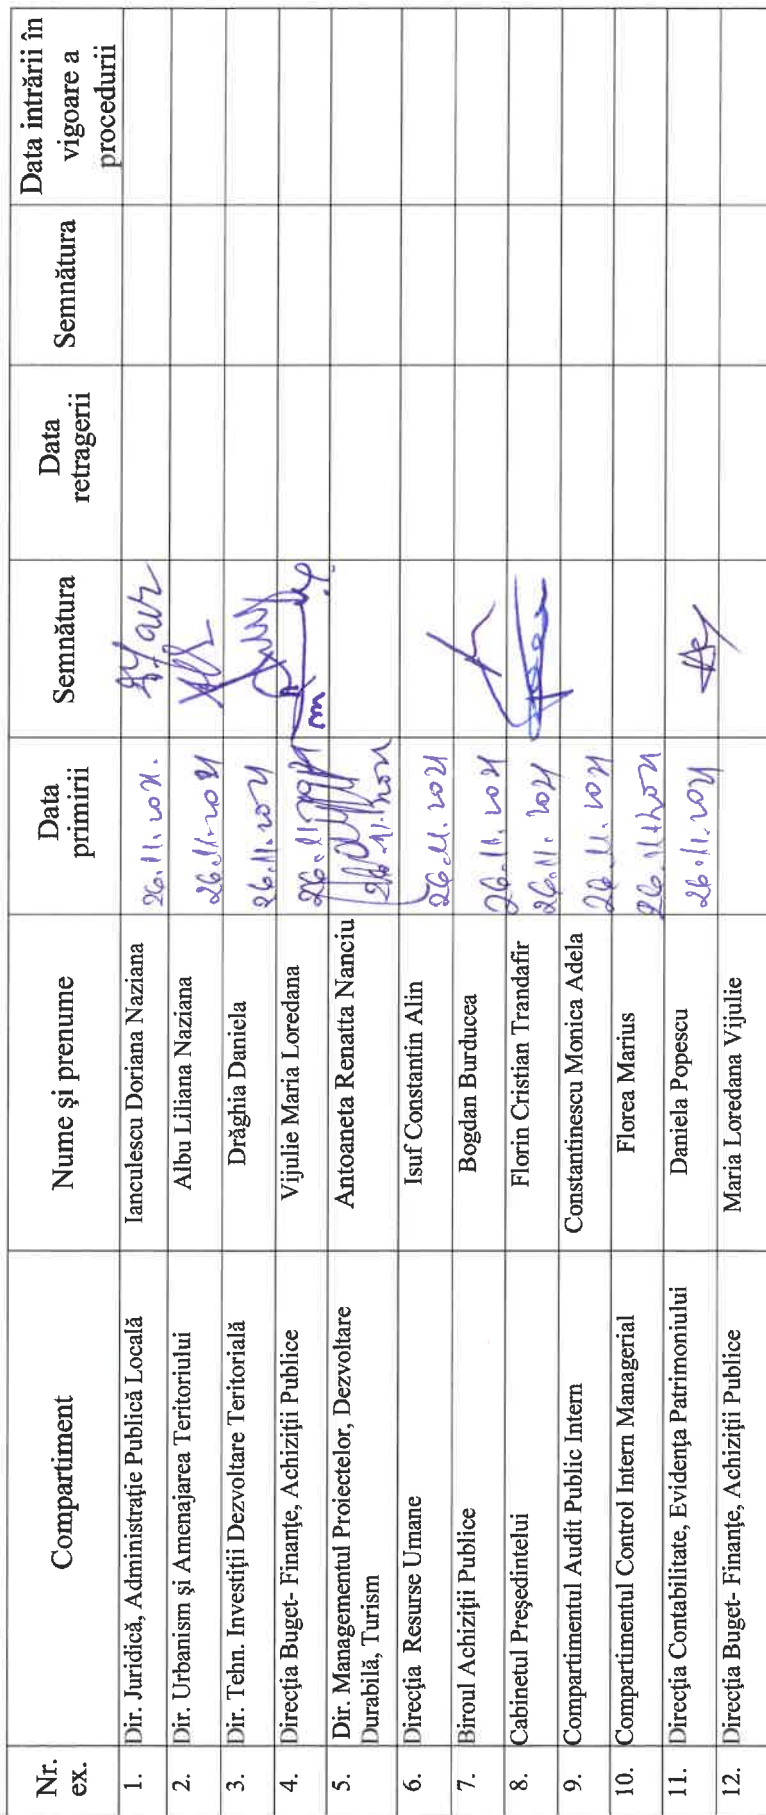 Nr. ex. Compartiment Nume și prenume Data primirii Semnătura Data retragerii Semnătura Data intrării în vigoare a procedurii
1. Dir. Juridică, Administrație Publică Locală Ianculescu Doriana Naziana 26.11.2021.
2. Dir. Urbanism și Amenajarea Teritoriului Albu Liliana Naziana 26.11.2021
3. Dir. Tehn. Investiții Dezvoltare Teritorială Drăghia Daniela 26.11.2021
4. Direcția Buget- Finanțe, Achiziții Publice Vijulie Maria Loredana 26.11.2021
5. Dir. Managementul Proiectelor, Dezvoltare Durabilă, Turism Antoaneta Renatta Nanciu 26.11.2021
6. Direcția Resurse Umane Isuf Constantin Alin 26.11.2021
7. Biroul Achiziții Publice Bogdan Burducea 26.11.2021
8. Cabinetul Președintelui Florin Cristian Trandafir 26.11.2021
9. Compartimentul Audit Public Intern Constantinescu Monica Adela 26.11.2021
10. Compartimentul Control Intern Managerial Florea Marius 26.11.2021
11. Direcția Contabilitate, Evidența Patrimoniului Daniela Popescu 26.11.2021
12. Direcția Buget- Finanțe, Achiziții Publice Maria Loredana Vijulie